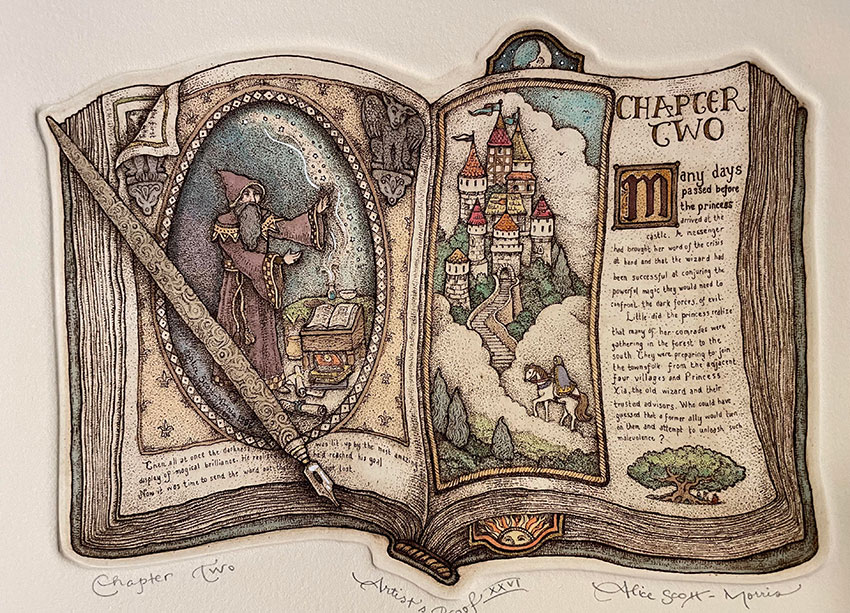 Then all at once the darkness was lit up by the most amazing
display of magical brilliance. He realized he'd reached his goal
Now it was time to send the word out lost.
CHAPTER
TWO
Many days
passed before
the princess
arrived at the
castle. A messenger
had brought her word of the crisis
at hand and that the wizard had
been successful at conjuring the
powerful magic they would need to
confront the dark forces of evil.
Little did the princess realize
that many of her comrades were
gathering in the forest to the
south. They were preparing to join
the townsfolk from the adjacent
four villages and Princess
Xia, the old wizard and their
trusted advisors. Who could have
guessed that a former ally would turn
on them and attempt to unleash such
malevolence?
Chapter Two
Artist's Proof XXVI
Alice Scott-Morris